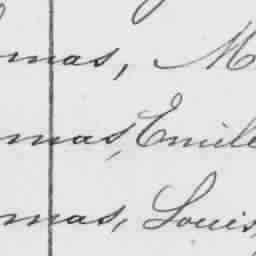 omas, M
omas, Emile
omas, Louis,